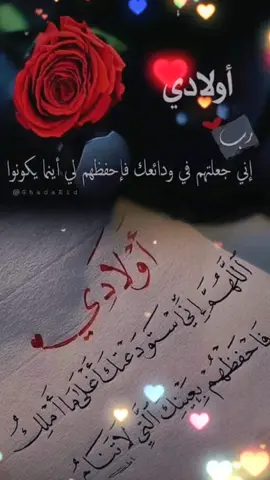 أولادي
رب
إني جعلتهم في ودائعك فإحفظهم لي أينما يكونوا
@GhadaEid
أَوْلَادِي
اَللّٰهُمَّ إِنِّي أَسْتَوْدَعْتُكَ أَغْلَىٰ مَا أَمْلِكُ
فَاحْفَظْهُمْ بِعَيْنِكَ الَّتِي لَا تَنَامُ